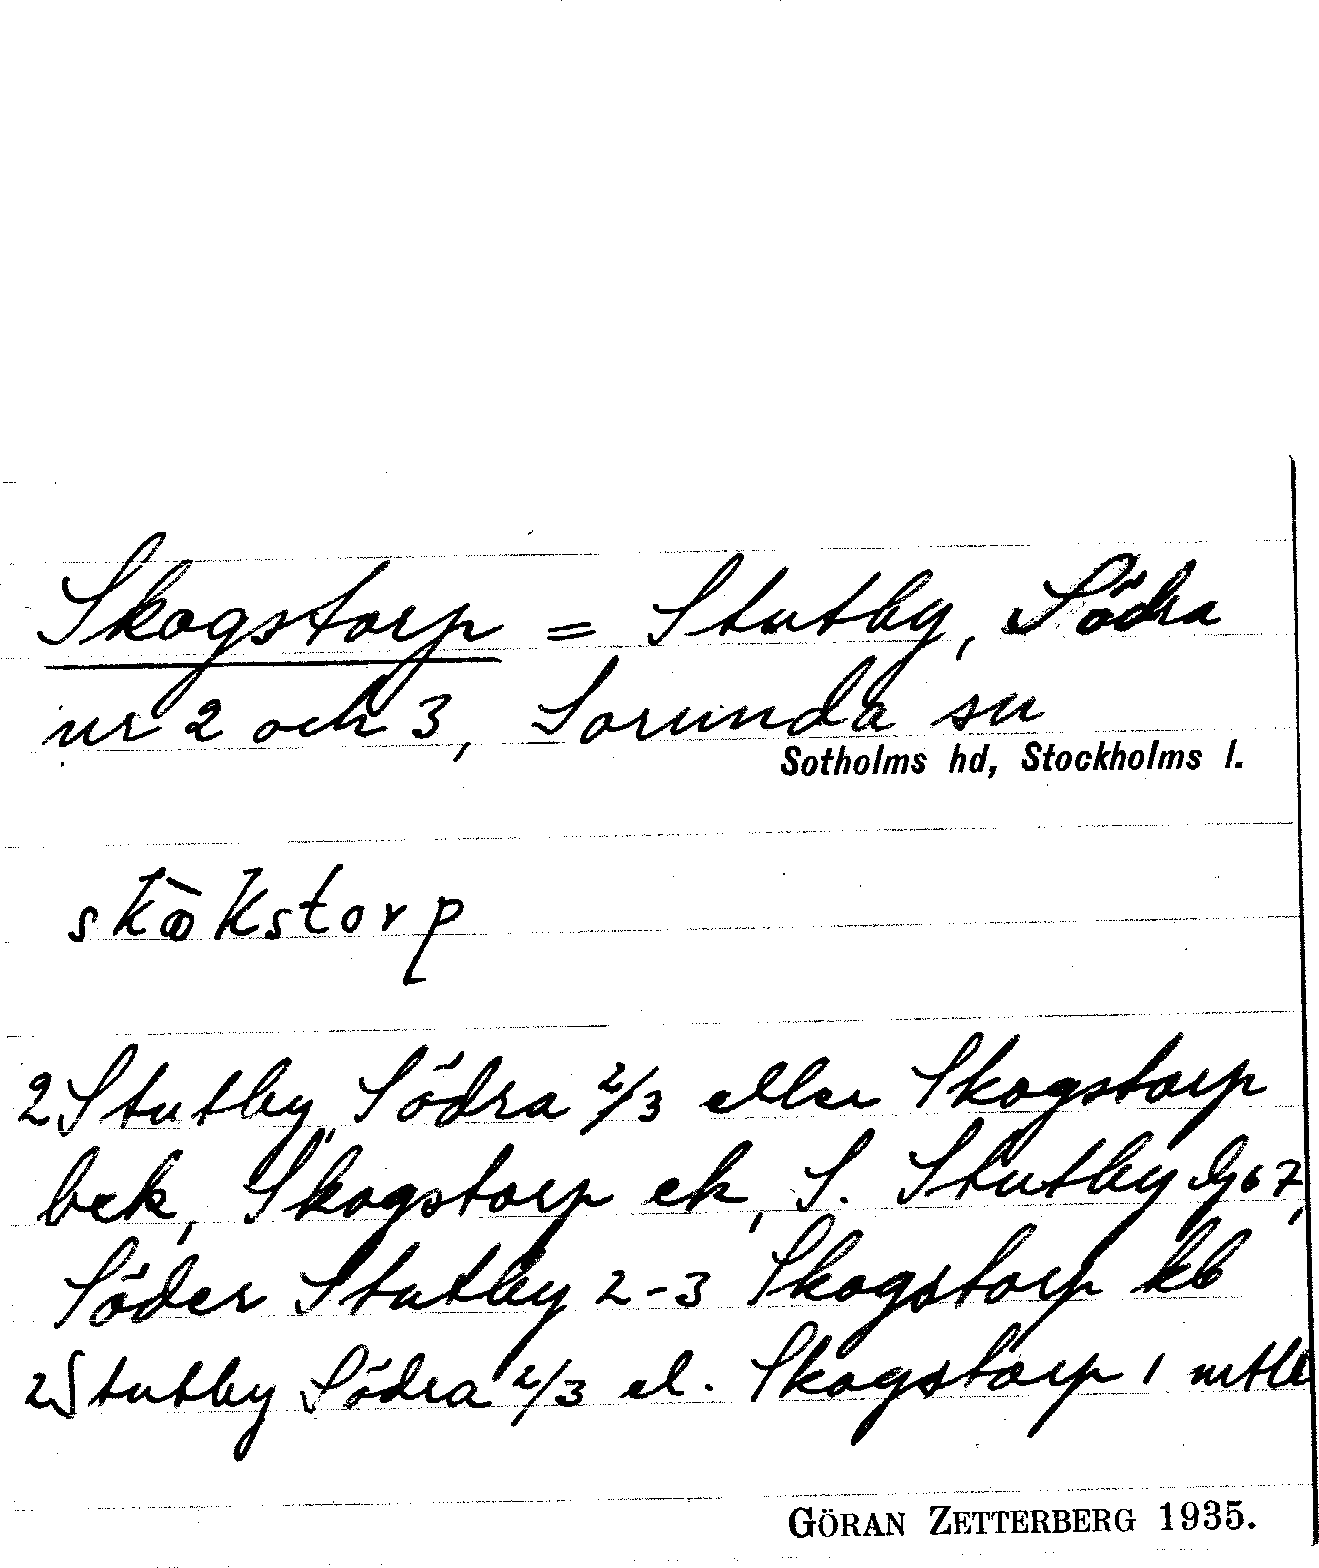 Skogstorp = Stutby, Södra
nr 2 och 3, Sorunda sn
Sotholms hd, Stockholms l.
skòkstorp
2 Stutby, Södra 2/3 eller Skogstorp
bek, Skogstorp ek, S. Stutby Gb 7,
Söder Stutby 2-3 Skogstorp kb
2 Stutby Södra 2/3 el. Skogstorp 1 mtl
GÖRAN ZETTERBERG 1935.